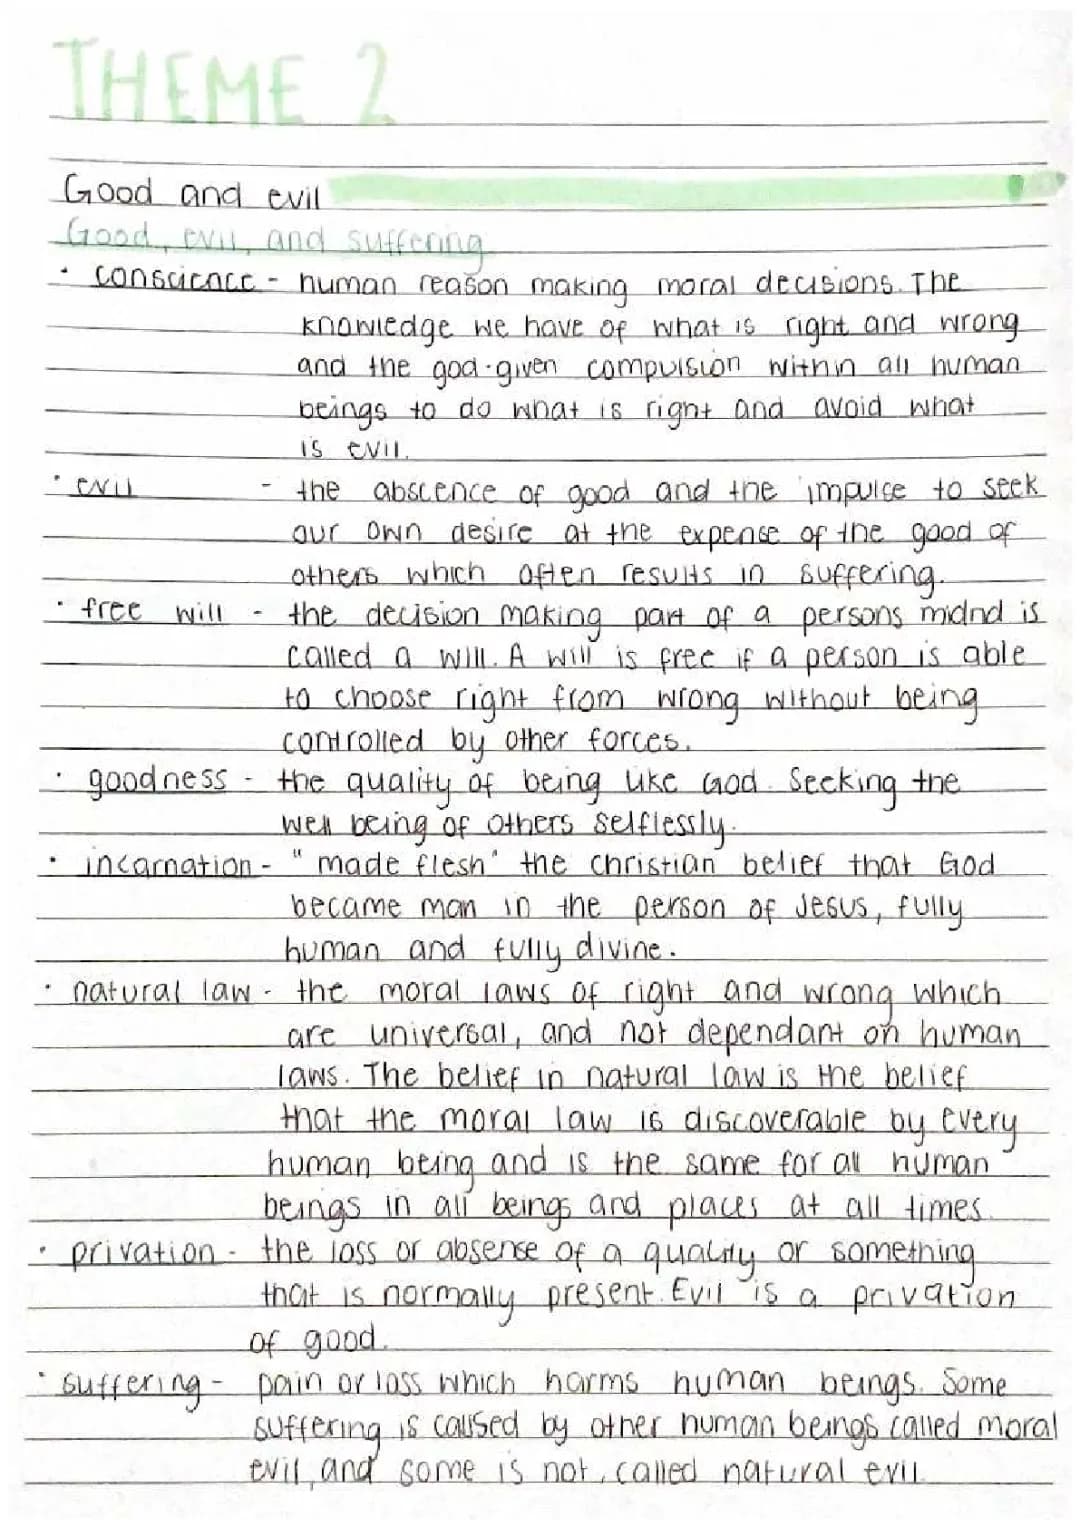 THEME 2
Good and evil
Good, evil, and suffering
· conscience - human reason making moral decisions. The
knowledge we have of what is right and wrong
and the god-given compulsion within all human
beings to do what is right and avoid what
is evil.
· evil - the abscence of good and the impulse to seek
our own desire at the expense of the good of
others which often results in suffering.
· free will - the decision making part of a persons midnd is
called a will. A will is free if a person is able
to choose right from wrong without being
controlled by other forces.
· goodness - the quality of being like God. Seeking the
well being of others selflessly.
· incarnation - "made flesh" the christian belief that God
became man in the person of Jesus, fully
human and fully divine.
· natural law - the moral laws of right and wrong which
are universal, and not dependant on human
laws. The belief in natural law is the belief
that the moral law is discoverable by every
human being and is the same for all human
beings in all beings and places at all times.
· privation - the loss or absense of a quality or something
that is normally present. Evil is a privation
of good.
· suffering - pain or loss which harms human beings. Some
suffering is caused by other human beings called moral
evil, and some is not, called natural evil.